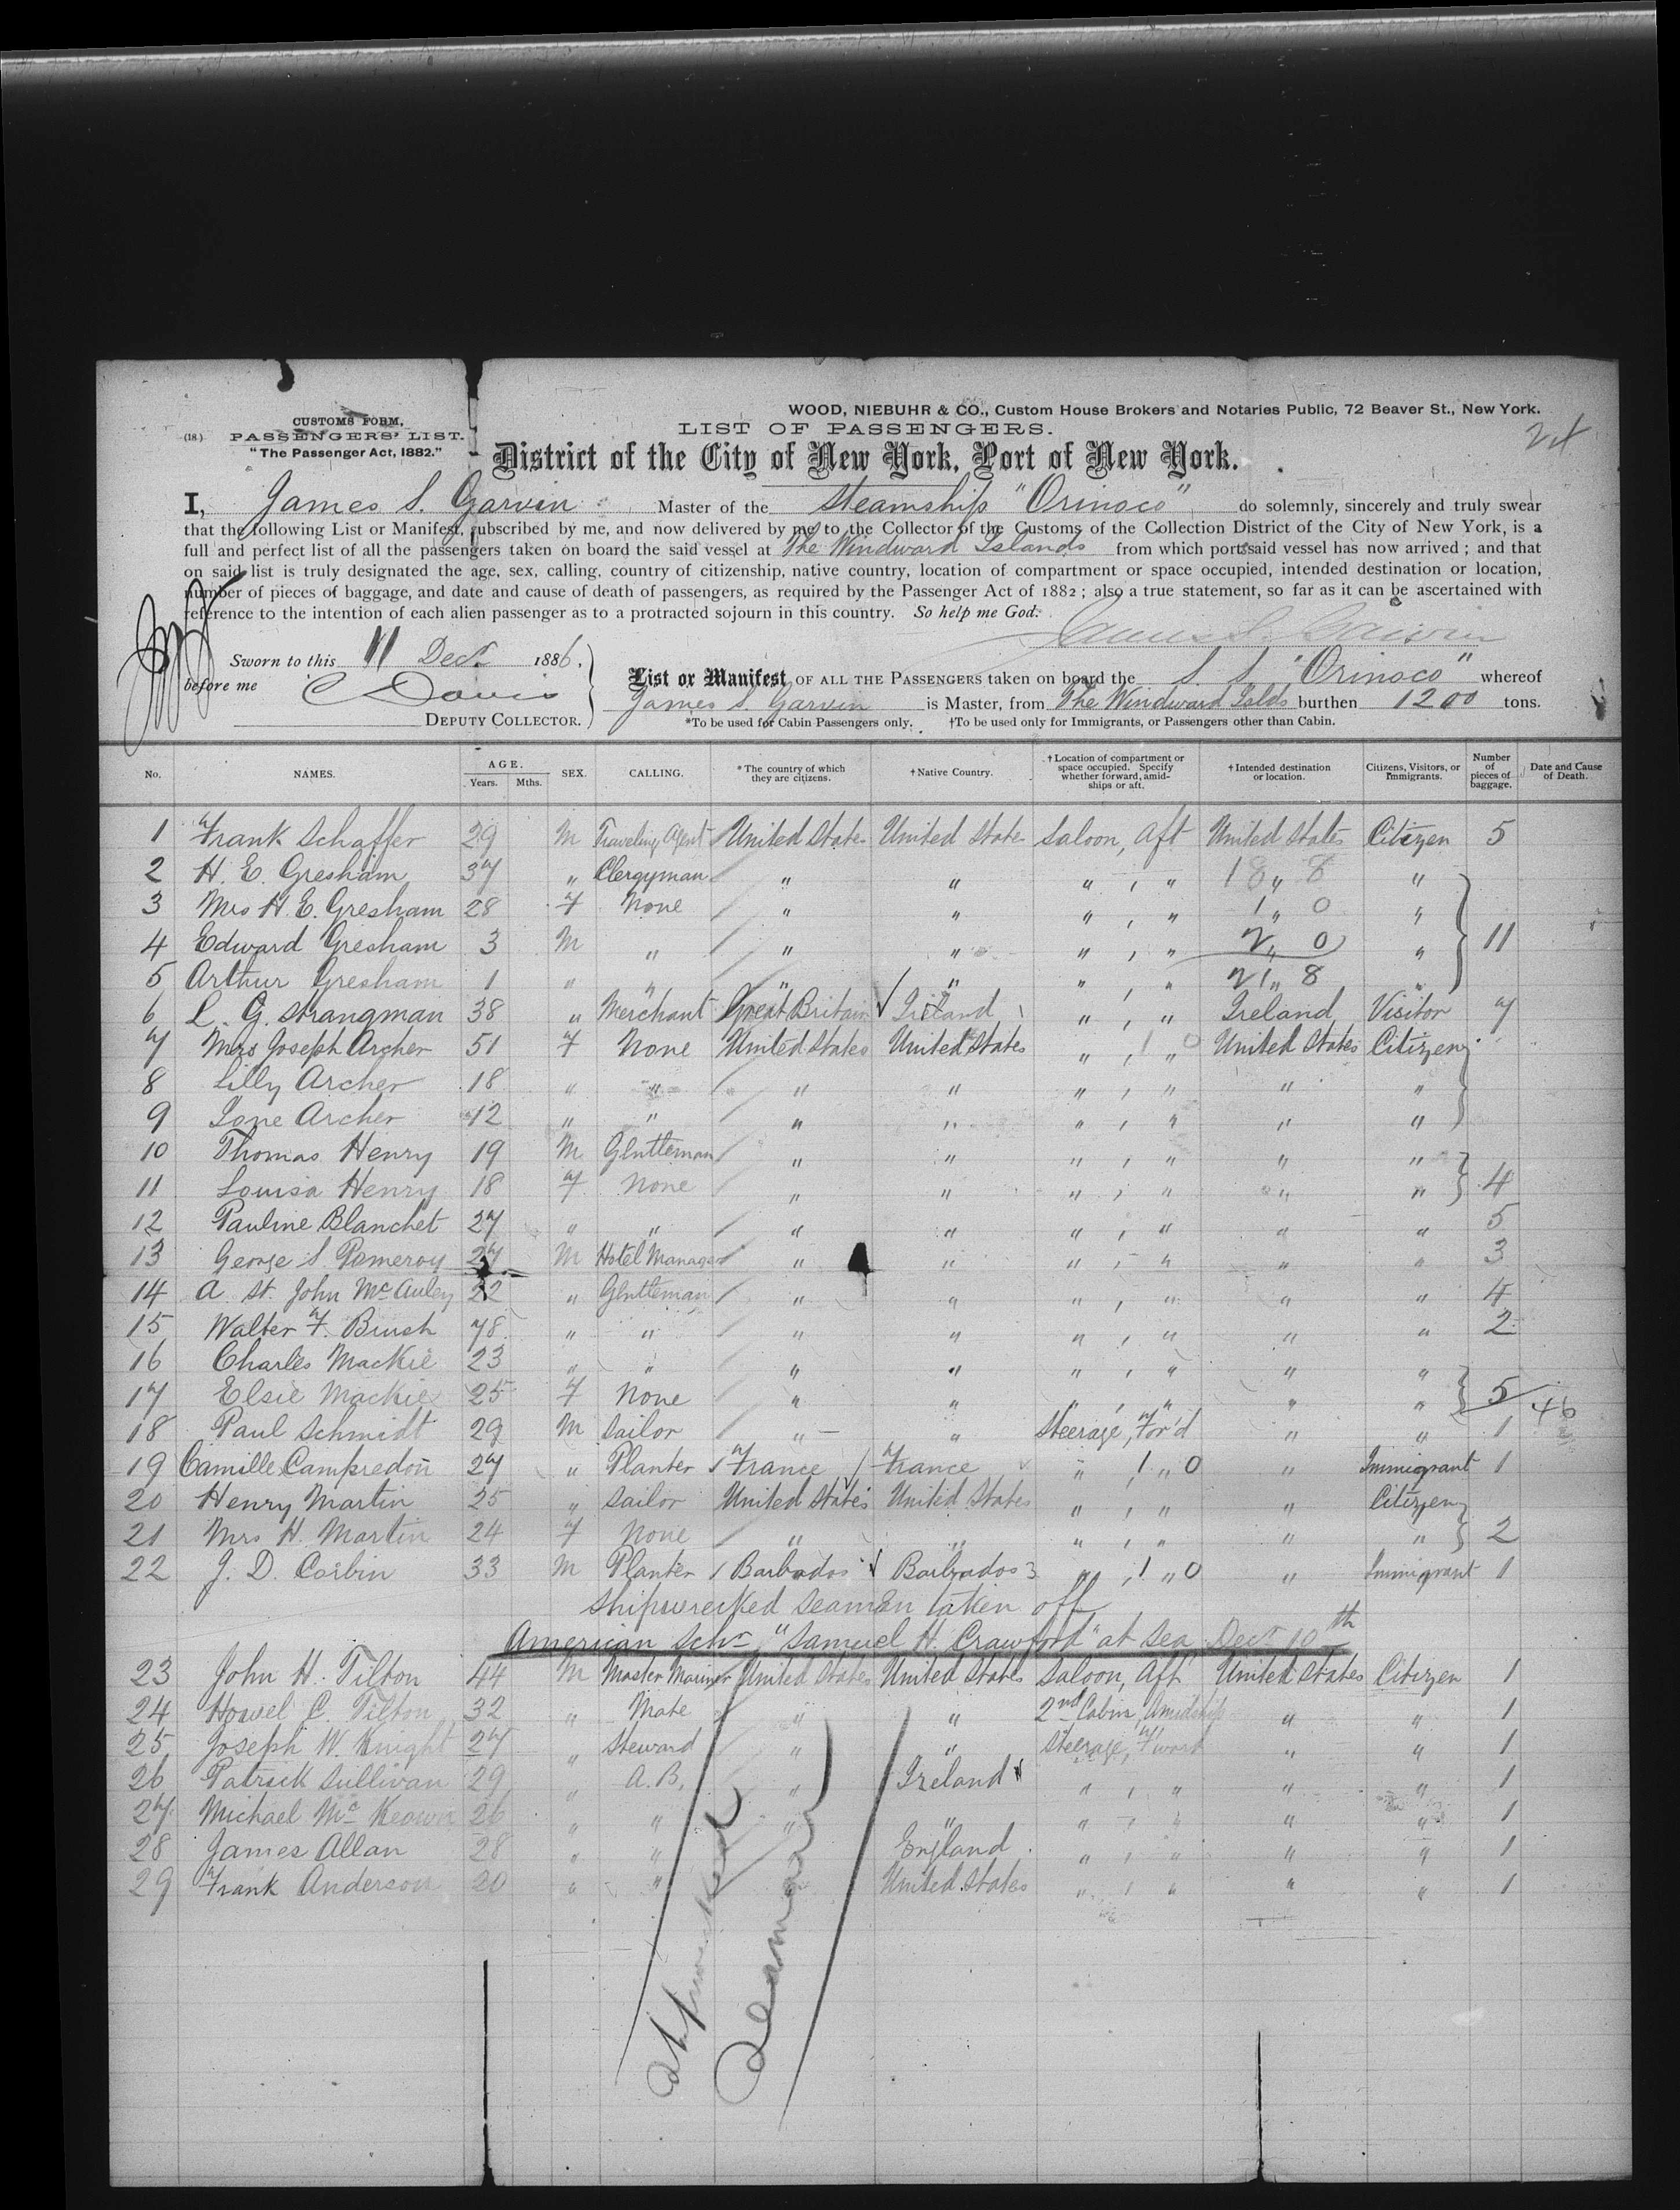 WOOD, NIEBUHR & CO., Custom House Brokers and Notaries Public, 72 Beaver St., New York.
CUSTOMS FORM,
(18) PASSENGERS' LIST.
"The Passenger Act, 1882."
LIST OF PASSENGERS.
District of the City of New York, Port of New York.
I, James S. Garvin Master of the Steamship "Orinoco" do solemnly, sincerely and truly swear
that the following List or Manifest, subscribed by me, and now delivered by me to the Collector of the Customs of the Collection District of the City of New York, is a
full and perfect list of all the passengers taken on board the said vessel at The Windward Islands from which port said vessel has now arrived ; and that
on said list is truly designated the age, sex, calling, country of citizenship, native country, location of compartment or space occupied, intended destination or location,
number of pieces of baggage, and date and cause of death of passengers, as required by the Passenger Act of 1882 ; also a true statement, so far as it can be ascertained with
reference to the intention of each alien passenger as to a protracted sojourn in this country. So help me God.
James S. Garvin
Sworn to this 11 Decr 1886.
before me C Davis
DEPUTY COLLECTOR.
List or Manifest OF ALL THE PASSENGERS taken on board the S. S. "Orinoco" whereof
James S. Garvin is Master, from The Windward Islds burthen 1200 tons.
*To be used for Cabin Passengers only. †To be used only for Immigrants, or Passengers other than Cabin.
No. NAMES. AGE. Years. Mths. SEX. CALLING. *The country of which they are citizens. †Native Country. †Location of compartment or space occupied. Specify whether forward, amidships or aft. †Intended destination or location. Citizens, Visitors, or Immigrants. Number of pieces of baggage. Date and Cause of Death.
1 Frank Schaffer 29 M Traveling Agent United State United State Saloon, Aft United States Citizen 5
2 H. E. Gresham 37 " Clergyman " " " , " 18 " 8 "
3 Mrs H. E. Gresham 28 F None " " " , " 1 " 0 "
4 Edward Gresham 3 M " " " " , " 2 " 0 " 11
5 Arthur Gresham 1 " " " " " , " 21 " 8 "
6 L. G. Strangman 38 " Merchant Great Britain Ireland " , " Ireland Visitor 7
7 Mrs Joseph Archer 51 F None United States United States " , 1 " 0 United States Citizen
8 Lilly Archer 18 " " " " " , " " "
9 Ione Archer 12 " " " " " , " " "
10 Thomas Henry 19 M Glntleman " " " , " " "
11 Louisa Henry 18 F None " " " , " " " 4
12 Pauline Blanchet 27 " " " " " , " " " 5
13 George S. Pomeroy 27 M Hotel Manager " " " , " " " 3
14 A. St. John McAuley 22 " Glntleman " " " , " " " 4
15 Walter F. Brush 78 " " " " " , " " " 2
16 Charles Mackie 23 " " " " " , " " "
17 Elsie Mackie 25 F None " " " , " " " 5 46
18 Paul Schmidt 29 M Sailor " " Steerage, For'd " " 1
19 Camille Campredon 27 " Planter France France " 1 " 0 " Immigrant 1
20 Henry Martin 25 " Sailor United States United States " , " " Citizen
21 Mrs H. Martin 24 F None " " " , " " " 2
22 J. D. Corbin 33 M Planter Barbados Barbados " , 1 " 0 " Immigrant 1
Shipwrecked Seamen taken off
American Schr "Samuel H. Crawford" at Sea Decr 10th
23 John H. Tilton 44 M Master Mariner United States United States Saloon, Aft United States Citizen 1
24 Howel C. Tilton 32 " Mate " " 2nd Cabin, Amidship " " 1
25 Joseph W. Knight 27 " Steward " " Steerage, Fward " " 1
26 Patrick Sullivan 29 " A.B. " Ireland " , " " " 1
27 Michael McKeown 26 " " " " " , " " " 1
28 James Allan 28 " " England " , " " " 1
29 Frank Anderson 20 " " " United States " , " " " 1
Shipwrecked
Seaman